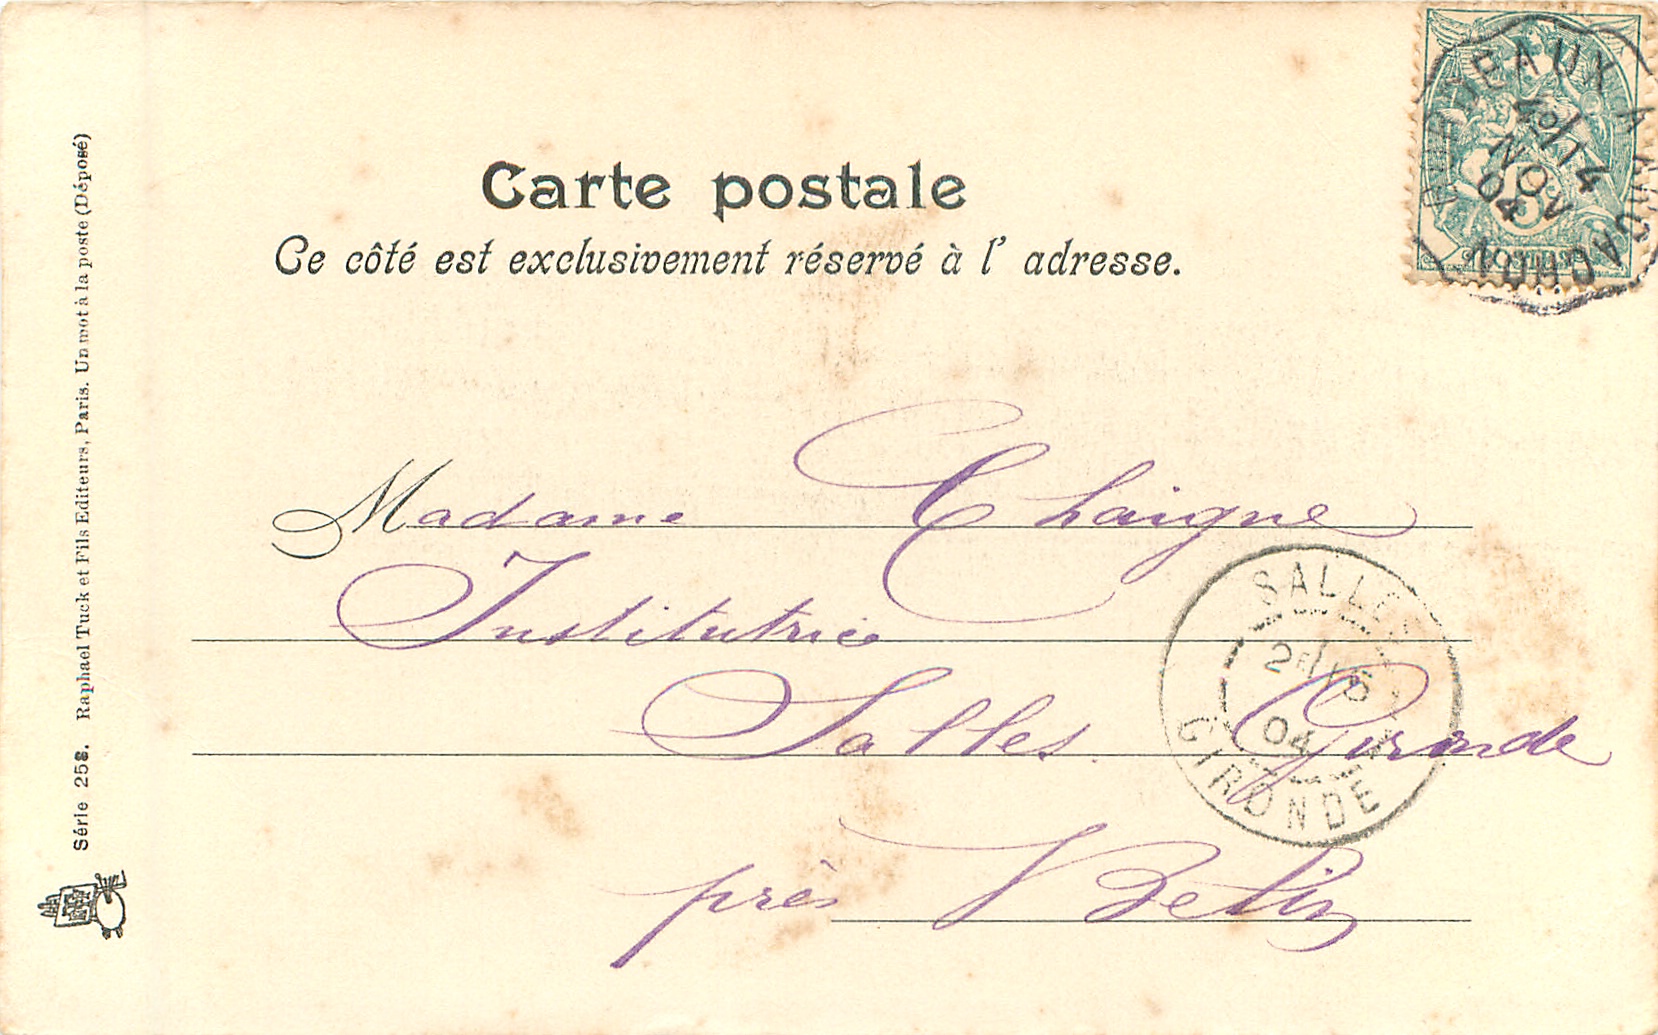 Carte postale
Ce côté est exclusivement réservé à l' adresse.
Madame Chaigne
Institutrice
Salles. Gironde
près Belin
Série 258. Raphael Tuck et Fils Editeurs, Paris. Un mot à la poste (Déposé)
BORDEAUX A ARCACHON
14
NOV
04
POSTES
SALLES
2E 15
04
GIRONDE